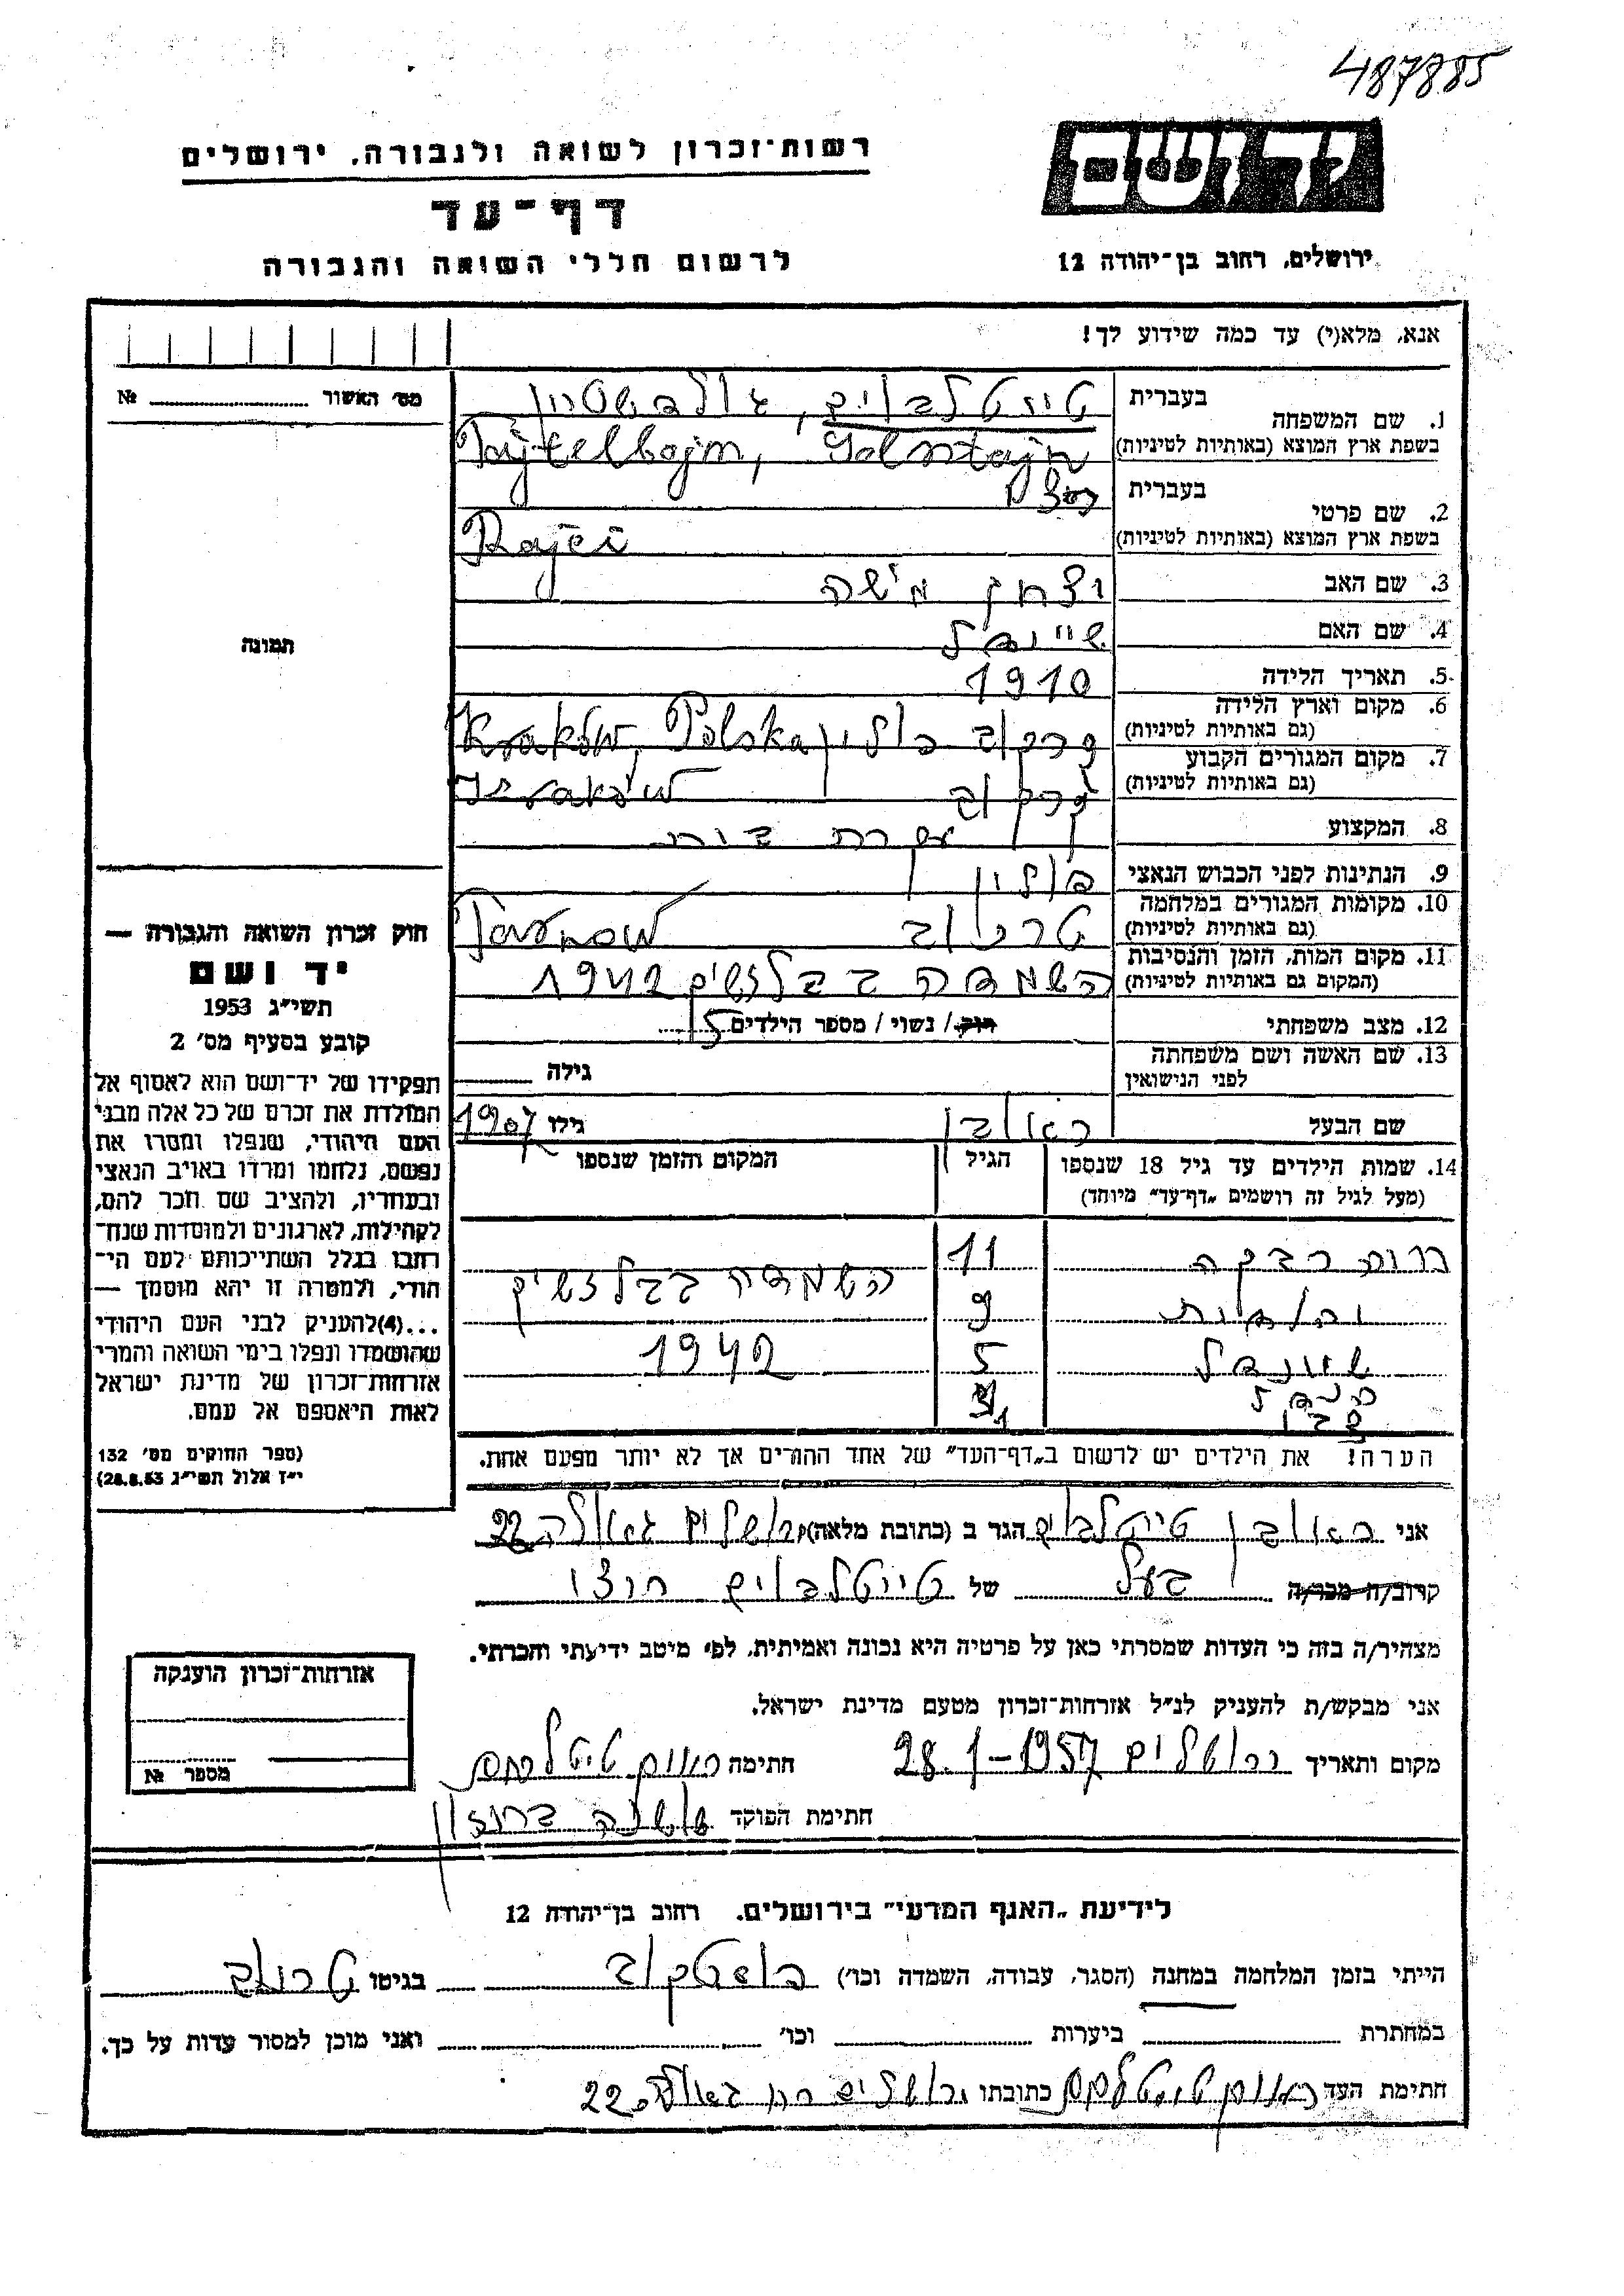 487885
יד ושם
רשות־זכרון לשואה ולגבורה, ירושלים
דף־עד
ירושלים, רחוב בן־יהודה 12
לרשום חללי השואה והגבורה
אנא, מלא(י) עד כמה שידוע לך!
מס׳ האשור № 
1. שם המשפחה
בעברית טייטלבוים, גולבשטיין
בשפת ארץ המוצא (באותיות לטיניות) Tajtelbojm,
2. שם פרטי
בעברית
בשפת ארץ המוצא (באותיות לטיניות)
3. שם האב יצחק משה
4. שם האם שיינדל
5. תאריך הלידה 1910
6. מקום וארץ הלידה
(גם באותיות לטיניות) קרקוב פולין Kraków, Polska
7. מקום המגורים הקבוע
(גם באותיות לטיניות) קרקוב Kraków
8. המקצוע עקרת בית
9. הנתינות לפני הכבוש הנאצי פולין
10. מקומות המגורים במלחמה
(גם באותיות לטיניות) טרנוב Tarnow
11. מקום המות, הזמן והנסיבות
(המקום גם באותיות לטיניות) השמדה בבלזשיץ 1942
12. מצב משפחתי רוק/ נשוי/ מספר הילדים 5
13. שם האשה ושם משפחתה
לפני הנישואין
גילה
שם הבעל ראובן גילו 1907
14. שמות הילדים עד גיל 18 שנספו
(מעל לגיל זה רושמים „דף־עד״ מיוחד)
הגיל
המקום והזמן שנספו
רבקה 11
יהודית 9 השמדה בבלזשיץ
שיינדל 5 1942
הינדל
1
הערה! את הילדים יש לרשום ב„דף־העד״ של אחד ההורים אך לא יותר מפעם אחת.
תמונה
חוק זכרון השואה והגבורה —
יד ושם
תשי״ג 1953
קובע בסעיף מס׳ 2
תפקידו של יד־ושם הוא לאסוף אל
המולדת את זכרם של כל אלה מבני
העם היהודי, שנפלו ומסרו את
נפשם, נלחמו ומרדו באויב הנאצי
ובעוזריו, ולהציב שם וזכר להם,
לקהילות, לארגונים ולמוסדות שנח־
רבו בגלל השתייכותם לעם הי־
הודי, ולמטרה זו יהא מוסמך —
...(4) להעניק לבני העם היהודי
שהושמדו ונפלו בימי השואה והמרי
אזרחות־זכרון של מדינת ישראל
לאות היאספם אל עמם.
(ספר החוקים מס׳ 132
י״ז אלול תשי״ג 28.8.53)
אני ראובן טייטלבוים הגר ב (כתובת מלאה) ירושלים גאולה 22
קרוב/ה מכר/ה בעל של טייטלבוים רייצי
מצהיר/ה בזה כי העדות שמסרתי כאן על פרטיה היא נכונה ואמיתית, לפי מיטב ידיעתי והכרתי.
אני מבקש/ת להעניק לנ״ל אזרחות־זכרון מטעם מדינת ישראל.
מקום ותאריך ירושלים 28.1-1957 חתימה ראובן טייטלבוים
חתימת הפוקד
אזרחות־זכרון הוענקה
מספר №
לידיעת „האגף המדעי״ בירושלים, רחוב בן־יהודה 12
הייתי בזמן המלחמה במחנה (הסגר, עבודה, השמדה וכו׳) פוסטקוב בגיטו טרנוב
במחתרת ביערות וכו׳ ואני מוכן למסור עדות על כך.
חתימת העד ראובן טייטלבוים כתובתו ירושלים רח׳ גאולה 22